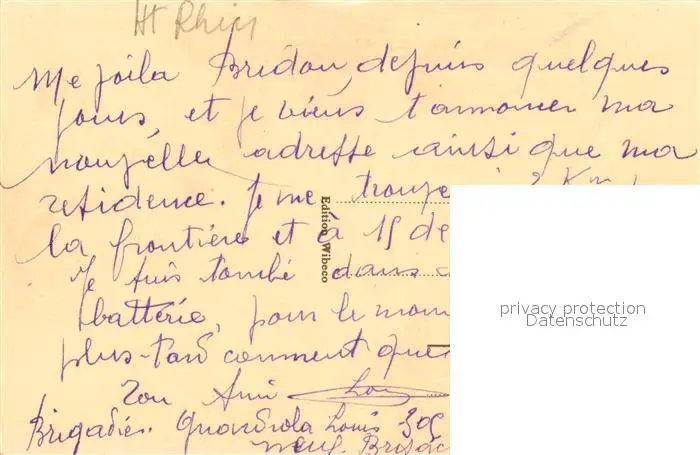 Ht Rhin
Me voila Bridou, depuis quelques
jours, et je viens t'annoncer ma
nouvelle adresse ainsi que ma
residence. Je me trouve 2 Km
la frontière et à 15 de
Je suis tombé dans
batterie, pour le mom
plus-tard comment que
Ton Ami Lou
Brigadier. Louis 305
neuf. Brisac
Edition Wibeco
privacy protection
Datenschutz